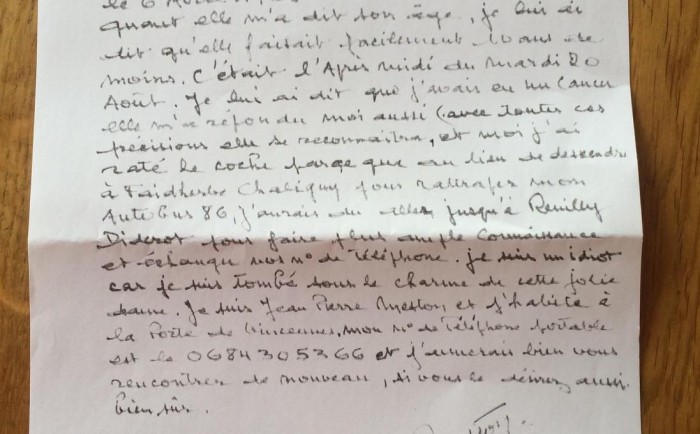 le 6
quand elle m'a dit son âge, je lui ai
dit qu'elle faisait facilement 10 ans de
moins. C'était l'Après midi du mardi 20
Août. Je lui ai dit que j'avais eu un Cancer
elle m'a répondu moi aussi (avec toutes ces
précisions elle se reconnaitra, et moi j'ai
raté le coche parce que au lieu de descendre
à Faidherbe Chaligny pour rattraper mon
Autobus 86, j'aurais du aller jusqu'à Reuilly
Diderot pour faire plus ample connaissance
et échanger nos n° de Téléphone. je suis un idiot
car je suis tombé sous le charme de cette jolie
dame. Je suis Jean Pierre et j'habite à
la Porte de Vincennes, mon N° de Téléphone portable
est le 0684305366 et j'aimerais bien vous
rencontrer de nouveau, si vous le désirez aussi
bien sûr.